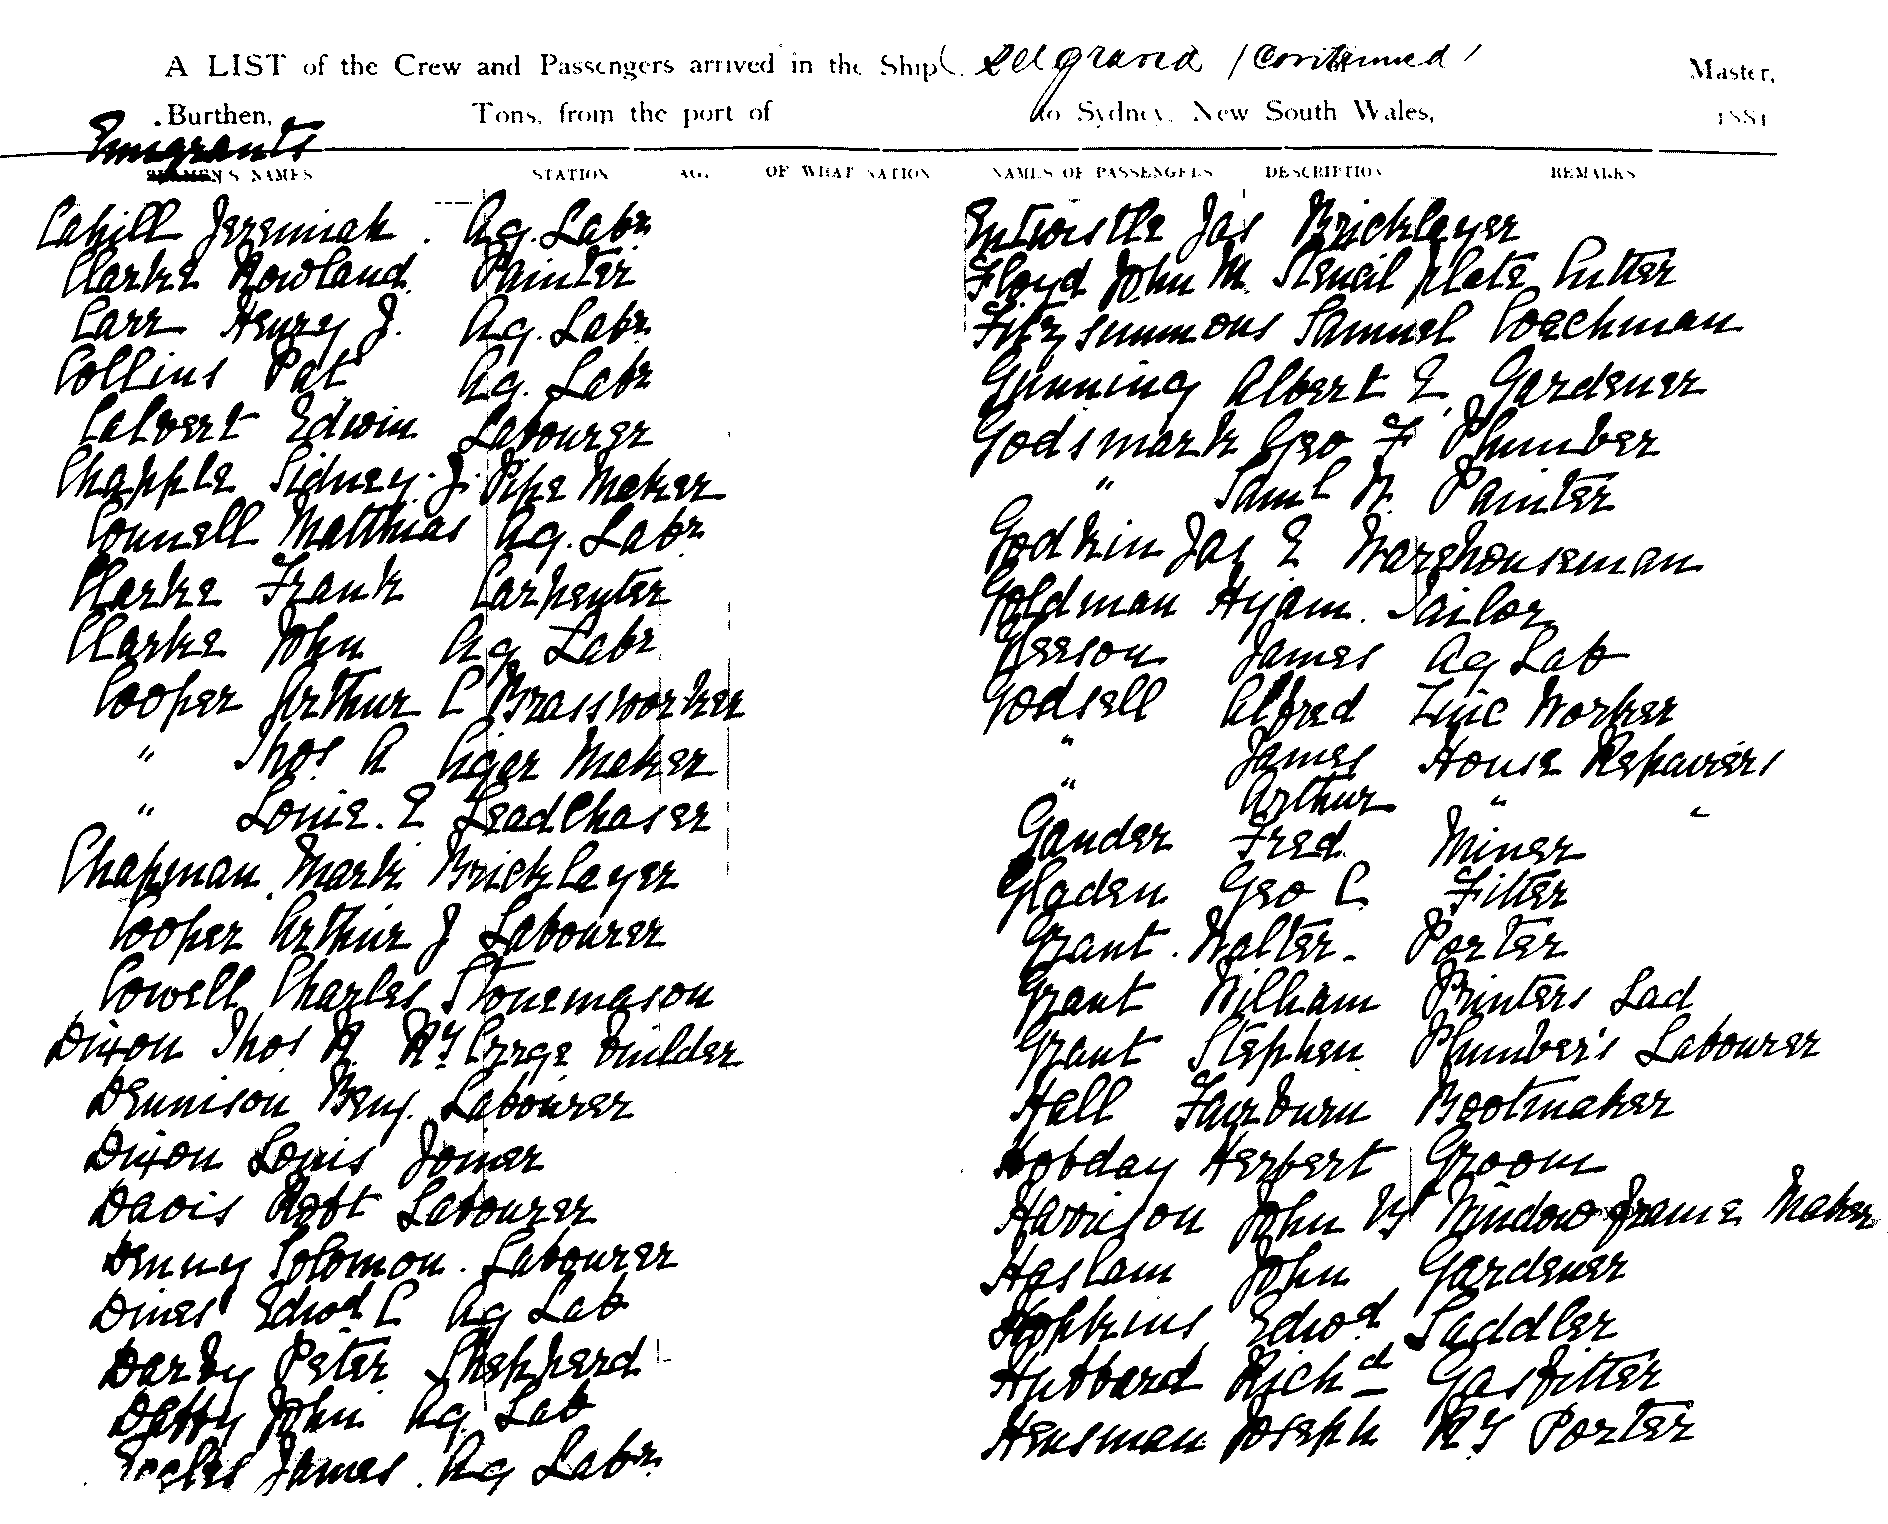 A LIST of the Crew and Passengers arrived in the Ship Belgravia (Continued) Master,
Burthen, Tons, from the port of to Sydney, New South Wales, 1881
Emigrants
SEAMEN'S NAMES STATION AGE OF WHAT NATION NAMES OF PASSENGERS DESCRIPTION REMARKS
Cahill Jeremiah Ag. Labr
Clarke Rowland Painter
Carr Henry J. Ag. Labr
Collins Pat Ag. Labr
Calvert Edwin Labourer
Chapple Sidney J. Pipe Maker
Connell Matthias Ag. Labr
Clarke Frank Carpenter
Clarke John Ag Labr
Cooper Arthur C Brassworker
" Thos. A Cigar Maker
" Louie. E Lead Chaser
Chapman Mark Bricklayer
Cooper Arthur J Labourer
Cowell Charles Stonemason
Dixon Thos R Ry Crrge builder
Dennison Benj. Labourer
Dixon Louis Joiner
Davis Robt Labourer
Denny Solomon. Labourer
Dines Edwd C Ag Lab
Darby Peter Shepherd
Daffy John Ag. Lab
Eccles James. Ag Labr
Entwistle Jas Bricklayer
Floyd John M. Stencil plate Cutter
Fitzsimmons Samuel Coachman
Gunning Albert E. Gardener
Godsmark Geo F Plumber
" Saml W. Painter
Godkin Jas E Warehouseman
Goldman Hyam. Tailor
Geeson James Ag Lab
Godsell Alfred Zinc Worker
" James House Repairers
" Arthur " "
Gander Fred. Miner
Gladen Geo C. Fitter
Grant. Walter. Porter
Grant William Printers Lad
Grant Stephen Plumber's Labourer
Hall Fairburn Bootmaker
Hobday Herbert Groom
Harrison John W Window frame Maker
Haslam John Gardener
Hopkins Edwd Saddler
Hubbard Richd Gasfitter
Hensman Joseph Ry Porter